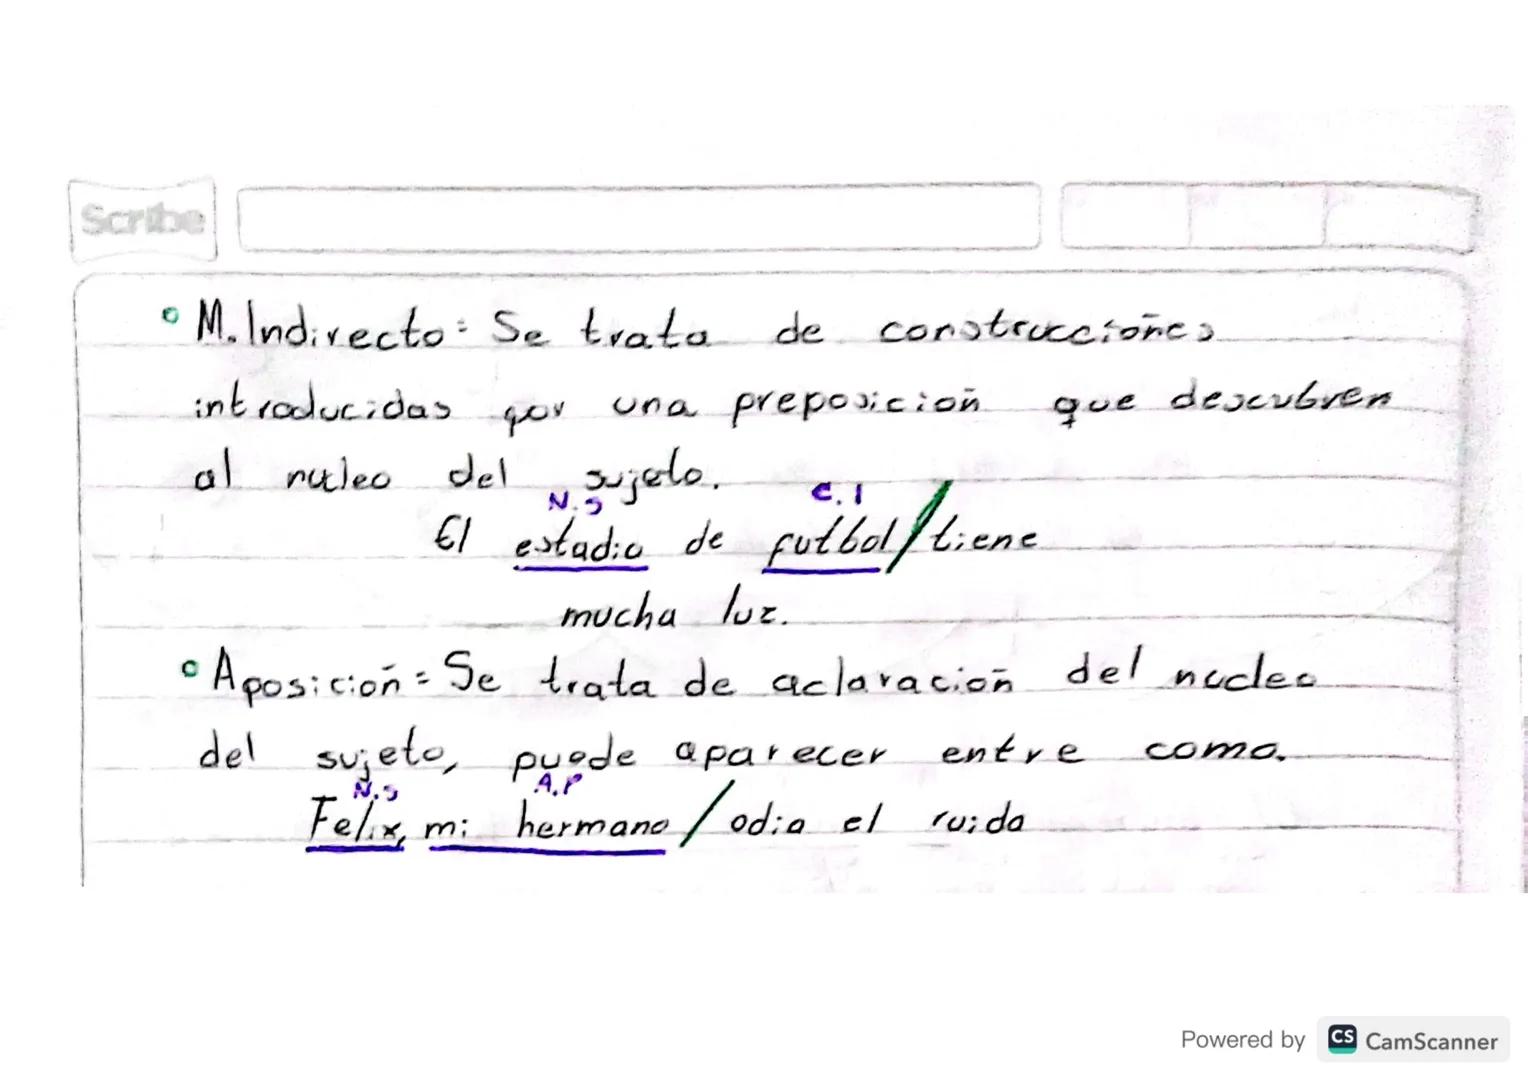 Scribe
° M. Indirecto: Se trata de construcciones
introducidas por una preposición que descubren
al nucleo del sujeto.
N.S C.I
El estadio de futbol / tiene
mucha luz.
° Aposición = Se trata de aclaración del nucleo
del sujeto, puede aparecer entre coma.
N.S A.P
Felix, mi hermano / odia el ruido
Powered by CS CamScanner